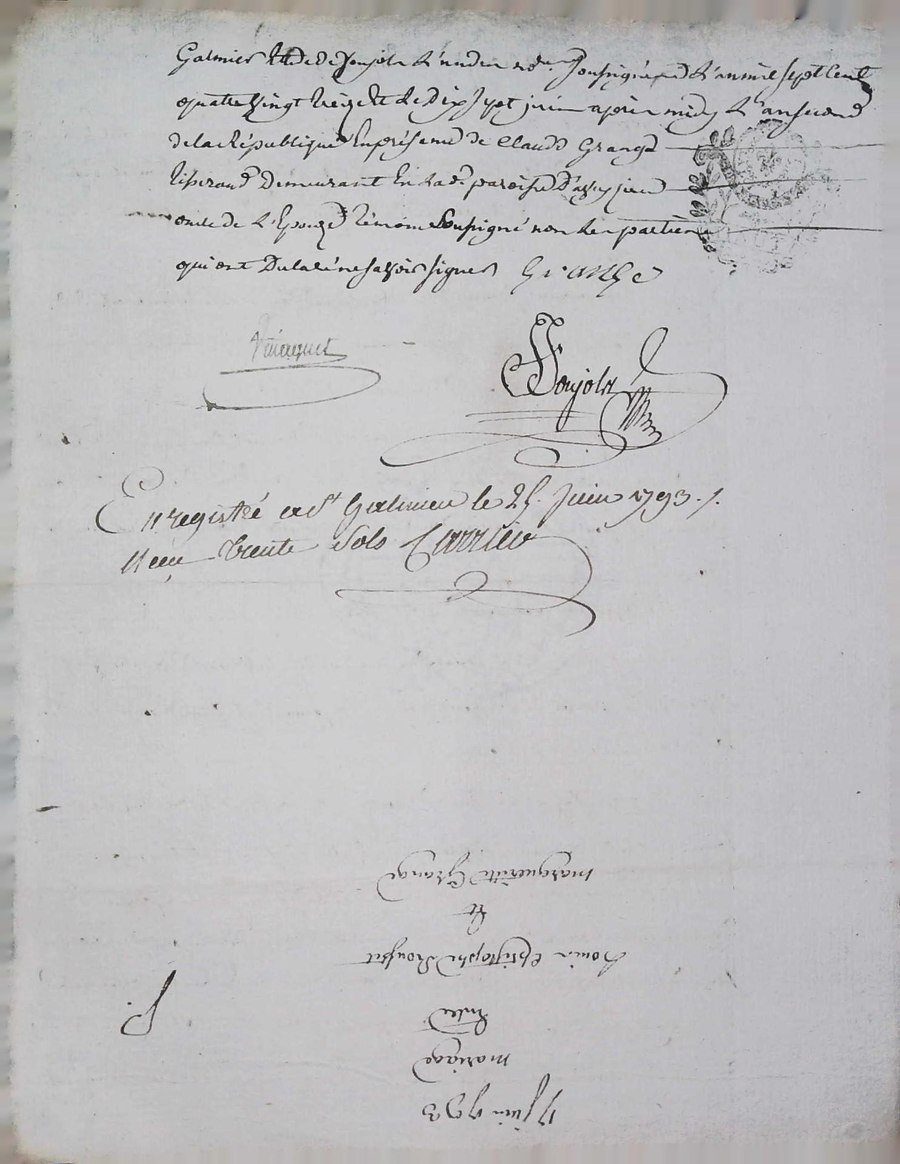 Galmier Et de de Joujola L'un des no.res soussignés L'an mil sept Cent
quatre Vingt treize Et Le Dix sept juin après midy L'an second
de la République En présence de Claude Grange
tisserand Demeurant En lad. paroisse
oncle de L'Epouze témoin Soussigné non Les parties
qui ont Declaré ne savoir signer Grange
Joujola
Enregistré a St Galmier le 25. Juin 1793. /.
Reçu trente sols Carrier
17 juin 1793
mariage
Entre
Louis Christophe Rousset
Et
marguerite Grange